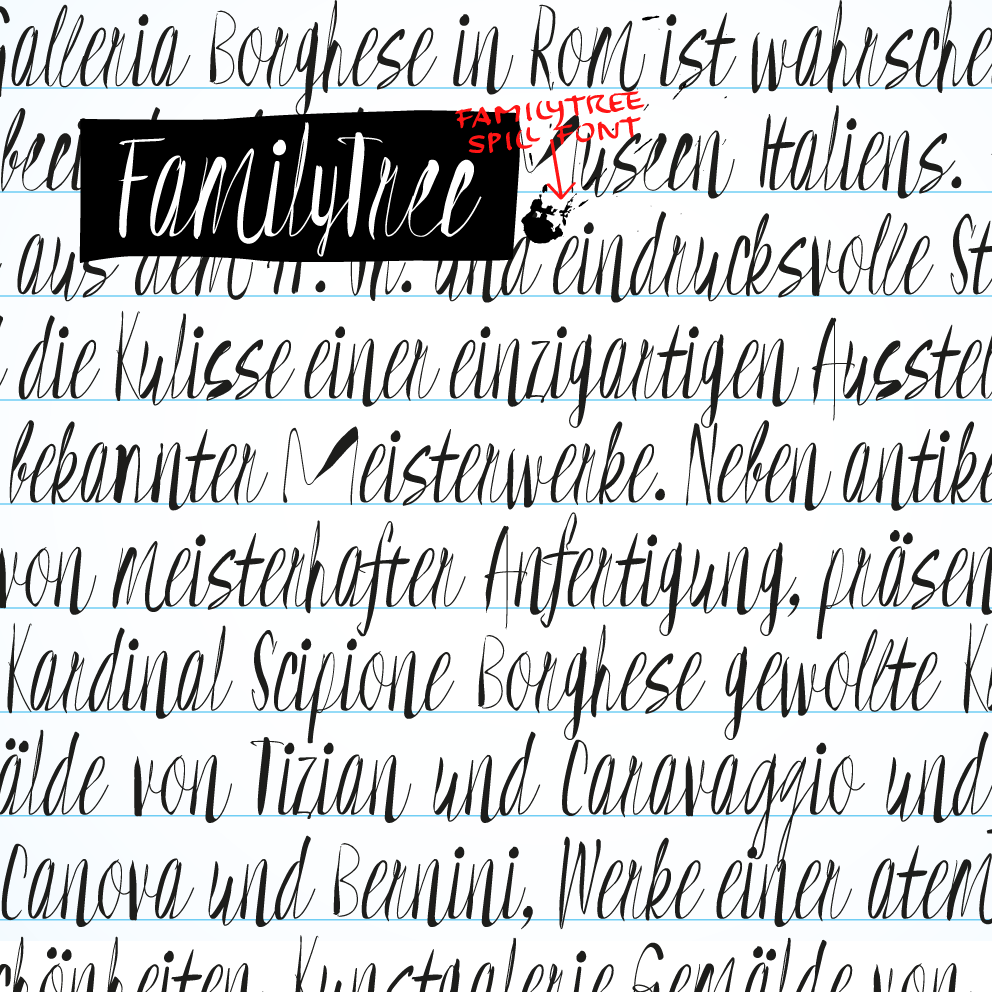 Galleria Borghese in Rom ist wahrsche
FAMILYTREE
SPILL FONT
FamilyTree
Museen Italiens.
aus dem und eindrucksvolle St
die Kulisse einer einzigartigen Ausstel
bekannter Meisterwerke. Neben antike
von meisterhafter Anfertigung, präsen
Kardinal Scipione Borghese gewollte K
älde von Tizian und Caravaggio und
Canova und Bernini, Werke einer atem
chönheiten. Kunstgalerie Gemälde von